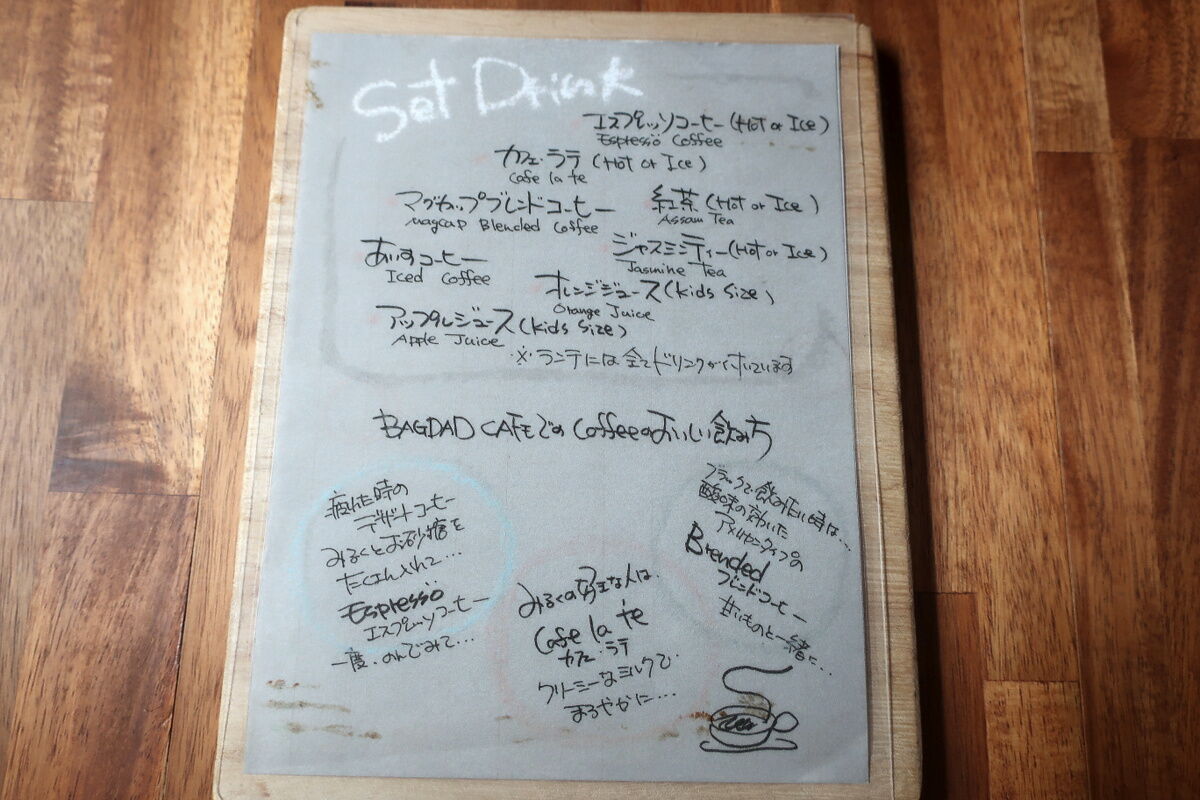 Set Drink
エスプレッソコーヒー (Hot or Ice)
Espresso Coffee
カフェ・ラテ (Hot or Ice)
Cafe la te
マグカップブレンドコーヒー
Magcap Blended Coffee
紅茶 (Hot or Ice)
Assam Tea
あいすコーヒー
Iced Coffee
ジャスミンティー (Hot or Ice)
Jasmine Tea
オレンジジュース (Kids Size)
Orange Juice
アップルジュース (Kids Size)
Apple Juice
※ランチには全てドリンクが付いています
BAGDAD CAFEでのCoffeeのおいしい飲み方
疲れた時の
デザートコーヒー
みるくとお砂糖を
たくさん入れて…
Espresso
エスプレッソコーヒー
一度、のんでみて…
みるくの好きな人は、
Cafe la te
カフェ・ラテ
クリーミーなミルクで
まろやかに…
ブラックで飲みたい時は…
酸味の効いた
アメリカンタイプの
Brended
ブレンドコーヒー
甘いものと一緒に…